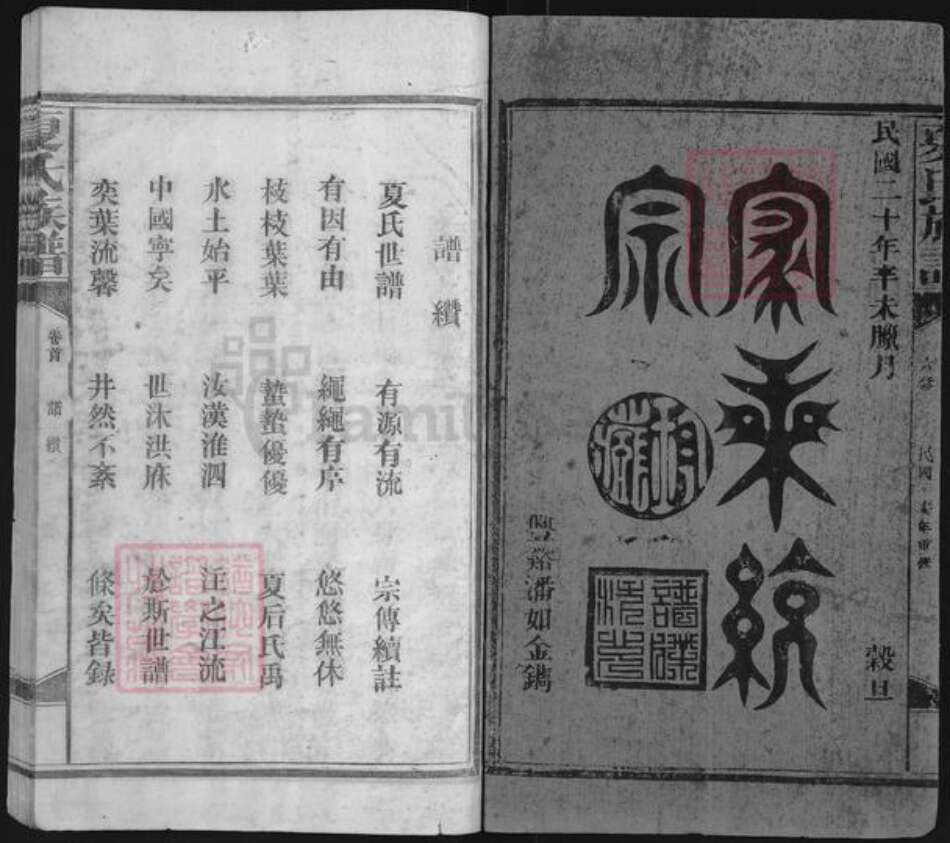 民國二十年辛未臘月 穀旦
家乘統
宗
潘如金鐫
譜纘
夏氏世譜 有源有流 宗傳續註
有因有由 繩繩有序 悠悠無休
枝枝葉葉 蟄蟄優優 夏后氏禹
水土始平 汝漢淮泗 注之江流
中國寧矣 世沐洪庥 於斯世譜
奕葉流馨 井然不紊 條矣皆錄
夏氏族譜 卷首 譜纘